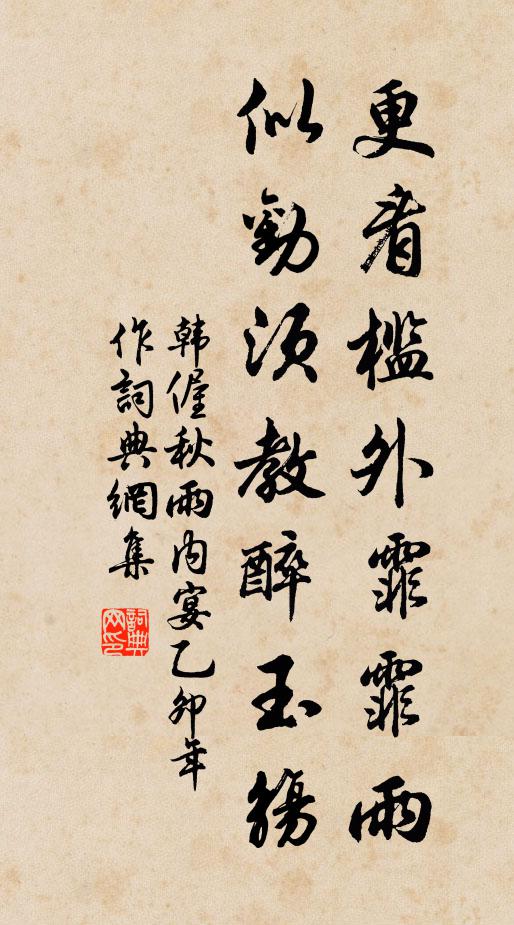 更看檻外霏霏雨
似勸須教醉玉觴
韩偓秋雨内宴乙卯年
作詞典網集
詞典網印